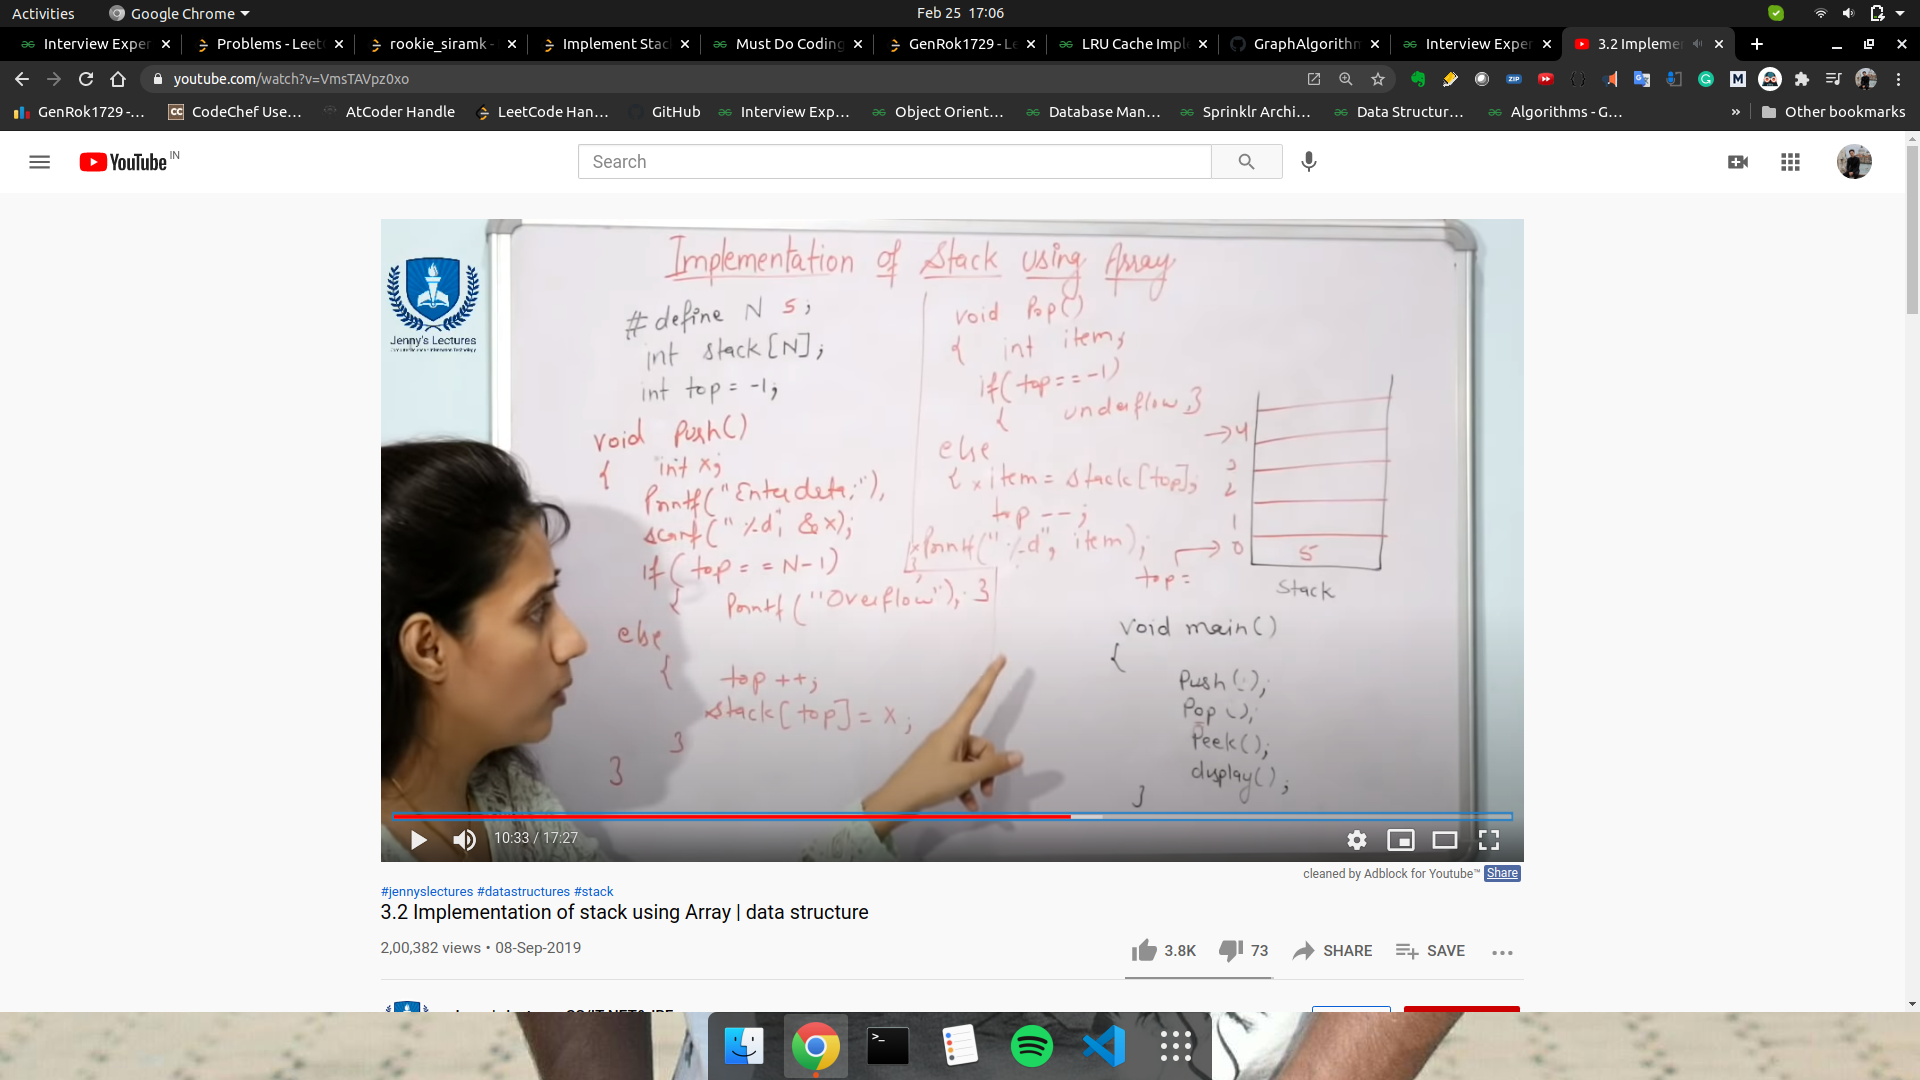 Activities Google Chrome Feb 25 17:06
Interview Exper Problems - Leet rookie_siramk - Implement Stac Must Do Coding GenRok1729 - Le LRU Cache Impl GraphAlgorithm Interview Exper 3.2 Implemen
youtube.com/watch?v=VmsTAVpz0xo
GenRok1729 -... CodeChef Use... AtCoder Handle LeetCode Han... GitHub Interview Exp... Object Orient... Database Man... Sprinklr Archi... Data Structur... Algorithms - G... » Other bookmarks
YouTube IN
Search
Jenny's Lectures
Implementation of Stack using Array
#define N 5;
int stack[N];
int top = -1;
void Push()
{ int x;
Printf("Enter data;");
scanf("%d", &x);
if(top == N-1)
{ Printf("Overflow"); }
else
{ top++;
stack[top] = x;
}
}
void Pop()
{ int item;
if(top == -1)
{ underflow }
else
{ item = stack[top];
top --;
Printf("%d", item);
4
3
2
1
0 5
top =
Stack
void main()
{
Push();
Pop();
Peek();
display();
}
10:33 / 17:27
cleaned by Adblock for Youtube™ Share
#jennyslectures #datastructures #stack
3.2 Implementation of stack using Array | data structure
2,00,382 views • 08-Sep-2019
3.8K 73 SHARE SAVE